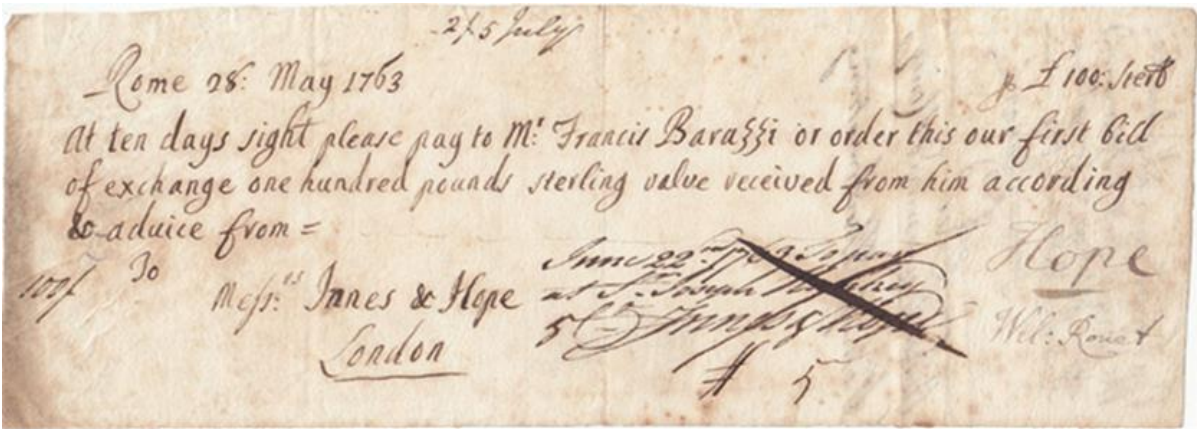 2/5 July
Rome 28: May 1763
£ 100: Ster
At ten days sight please pay to Mr. Francis Barazzi or order this our first bill
of exchange one hundred pounds sterling value received from him according
to advice from =
To
Messrs Innes & Hope
London
June 22
at Sr. Joseph
Innes & Hope
Hope
Wil: Rouet
5